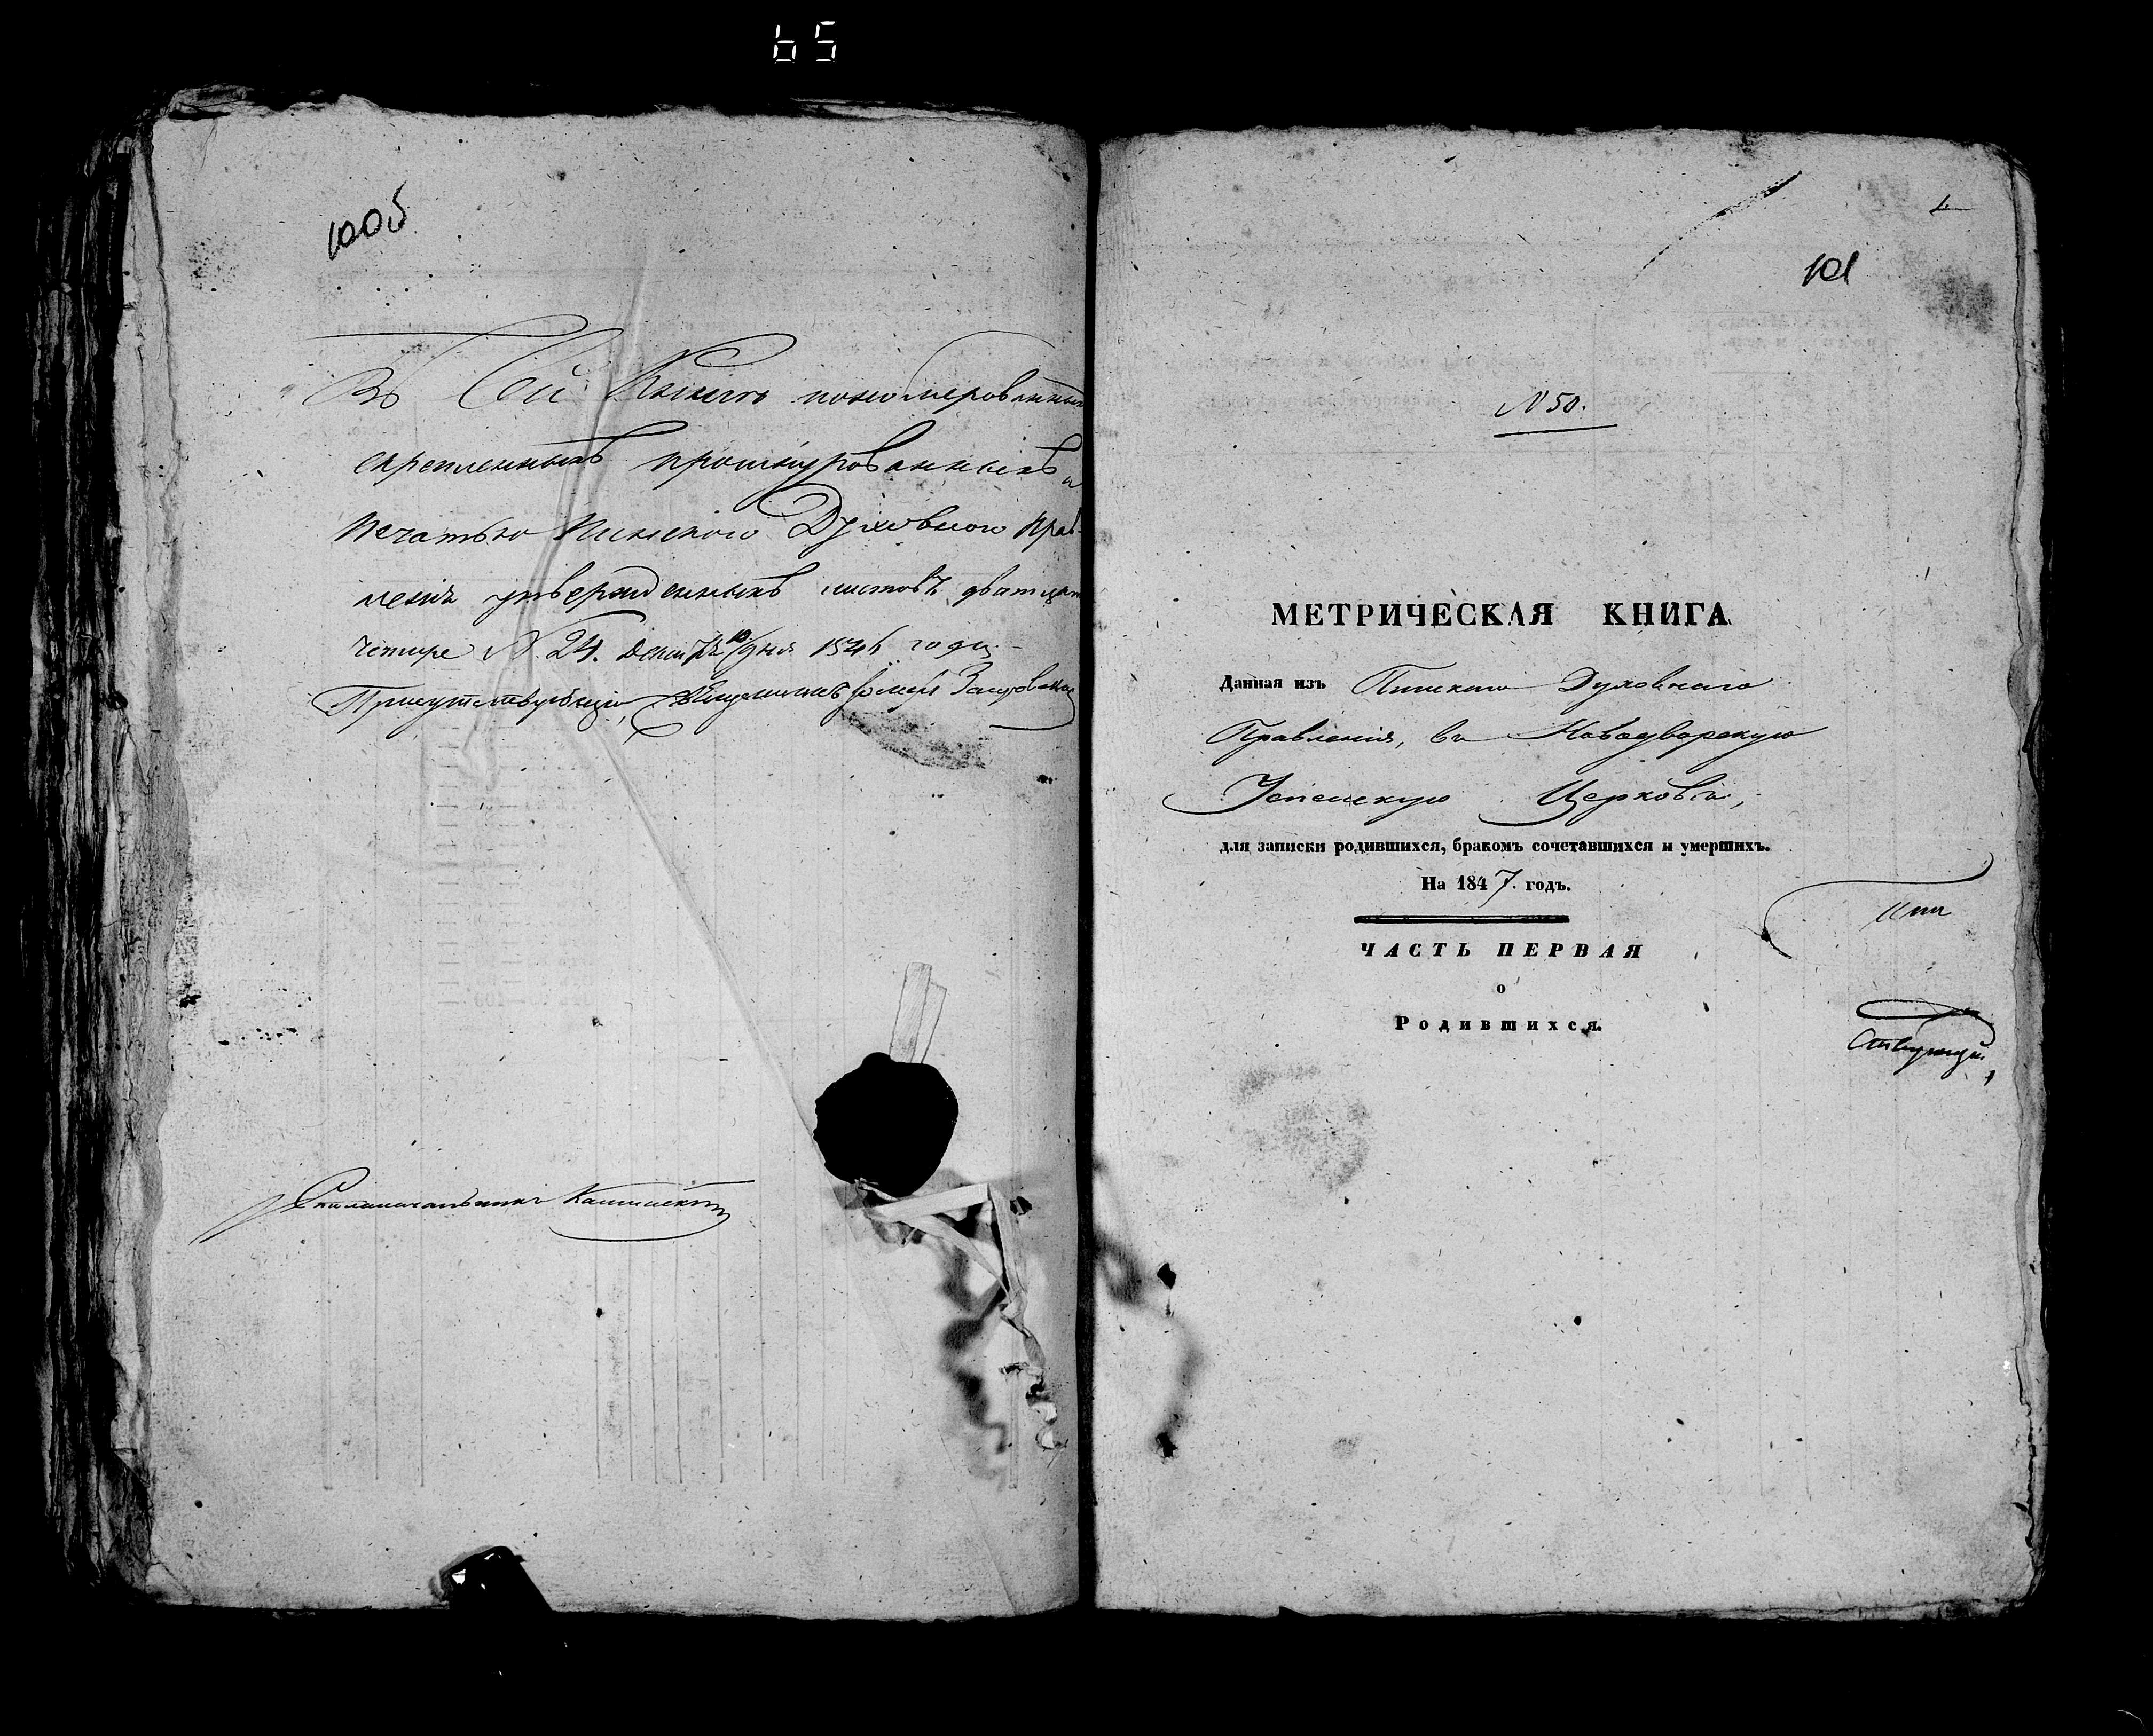 65
100об
Въ сей Книгѣ пономерованныхъ
скрепленныхъ прошнурованныхъ и
печатью Пинскаго Духовного Прав-
ленія утвержденныхъ листовъ дватцать
четыре N. 24. Декабря 10 дня 1846 года
Присутствующій
Столоначальникъ
1
101
N 50.
МЕТРИЧЕСКАЯ КНИГА
Данная изъ Пинскаго Духовнаго
Правленія, въ Новодворскую
Успенскую Церковь,
для записки родившихся, бракомъ сочетавшихся и умершихъ.
На 1847. годъ.
ЧАСТЬ ПЕРВАЯ
о
Родившихся.
ствующій,